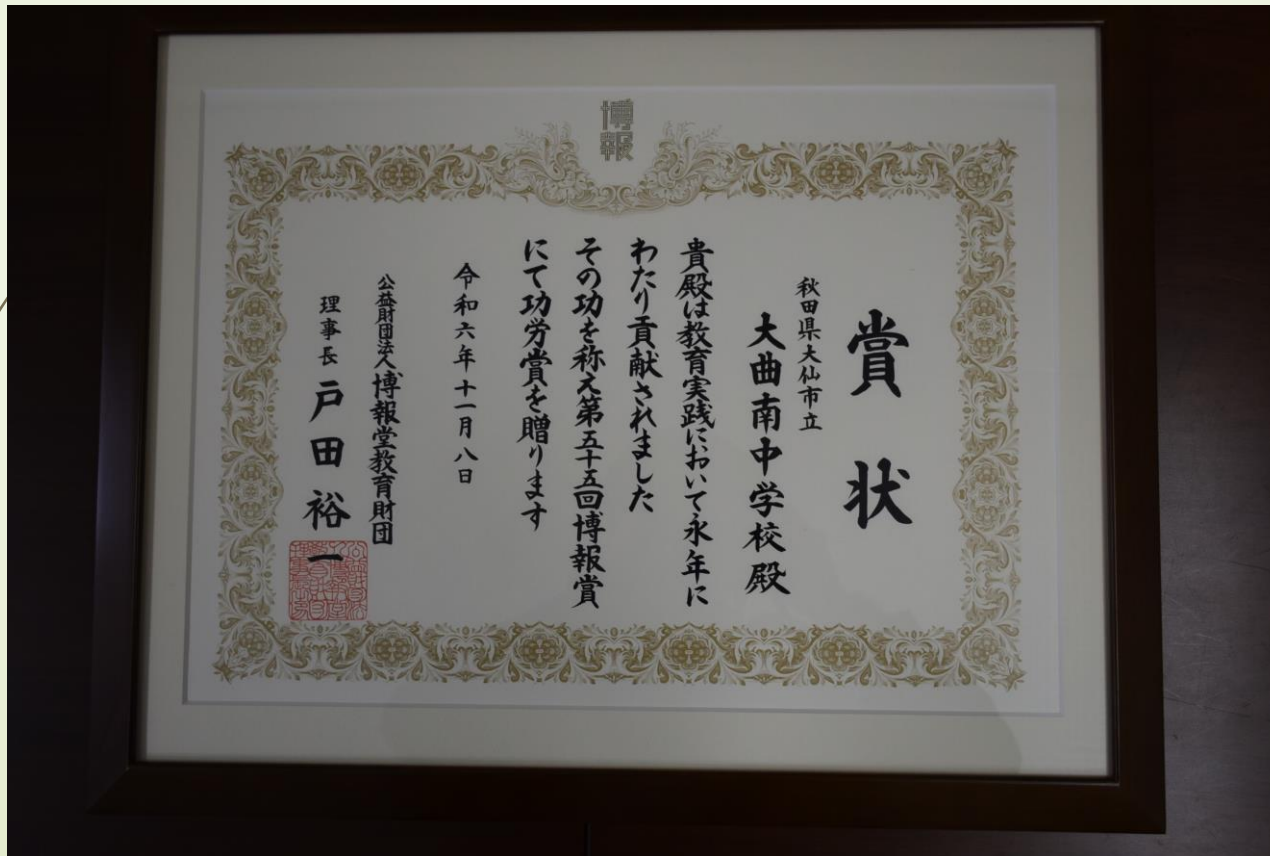 博報
賞状
秋田県大仙市立
大曲南中学校殿
貴殿は教育実践において永年に
わたり貢献されました
その功を称え第五十五回博報賞
にて功労賞を贈ります
令和六年十一月八日
公益財団法人博報堂教育財団
理事長戸田裕一